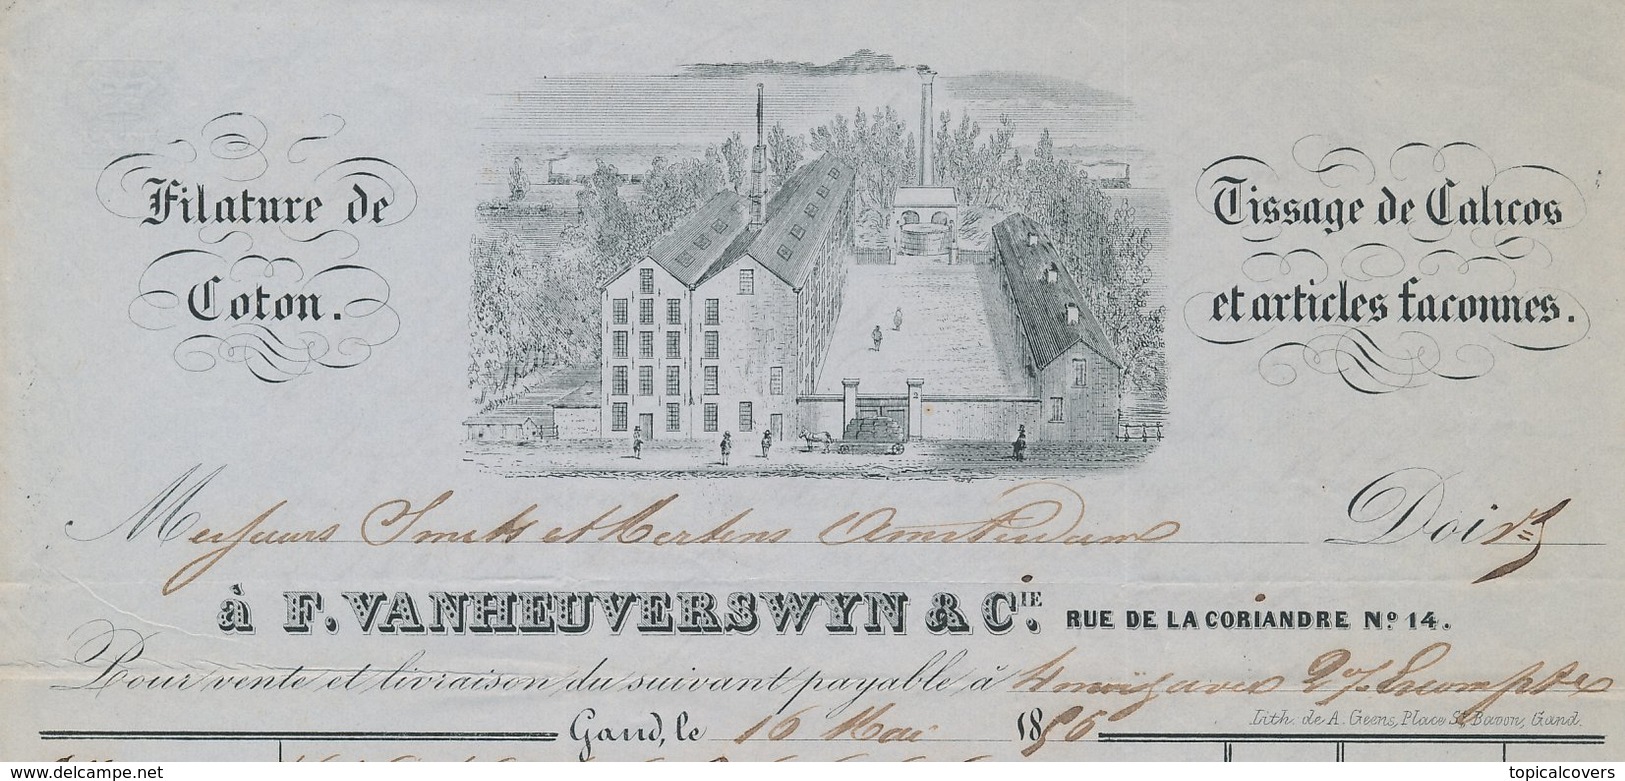 Filature de
Coton.
Tissage de Calicos
et articles faconnes.
2
Messieurs Smits et Mertens Amsterdam Doivt
à F. VANHEUVERSWYN & CIE. RUE DE LA CORIANDRE No 14.
Pour vente et livraison du suivant payable à 4 mois avec 2% Escompte
Gand, le 16 Mai 1856
Lith. de A. Geens, Place St Bavon, Gand.
topicalcovers